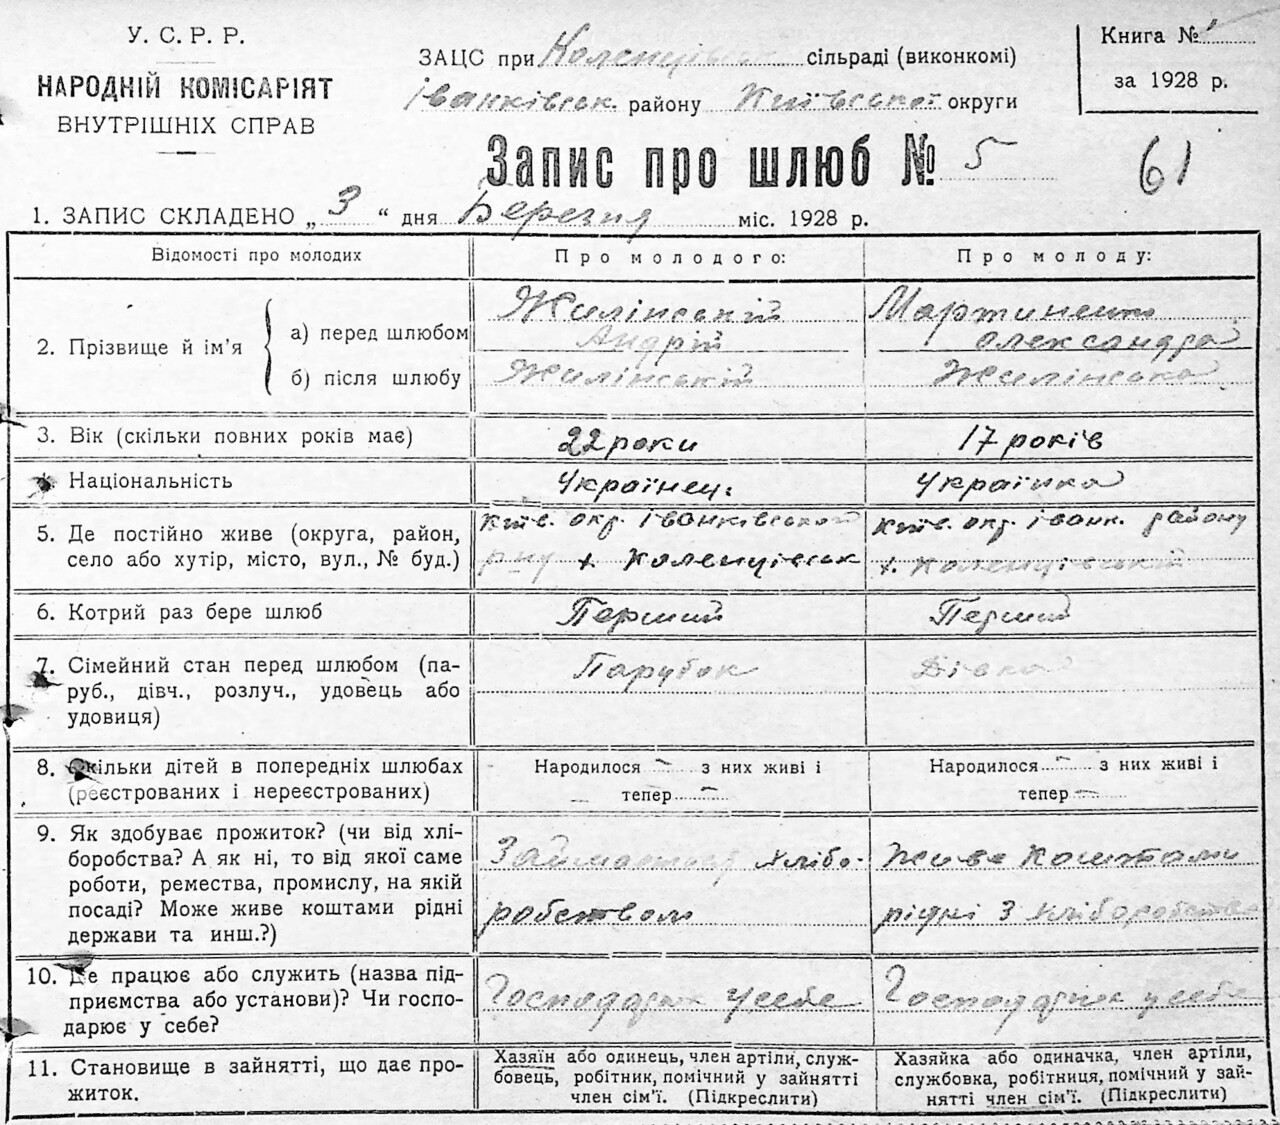 У. С. Р. Р.
НАРОДНІЙ КОМІСАРІЯТ
ВНУТРІШНІХ СПРАВ
ЗАЦС при Коленців сільраді (виконкомі)
Іванківськ району Київської округи
Книга №
за 1928 р.
Запис про шлюб № 5
61
1. ЗАПИС СКЛАДЕНО „ 3 “ дня Березня міс. 1928 р.
Відомості про молодих
Про молодого:
Про молоду:
2. Прізвище й ім’я
а) перед шлюбом
Жилінській
Андрій
Мартиненко
Олександра
б) після шлюбу
Жилінській
Жилінська
3. Вік (скільки повних років має)
22 роки
17 років
Національність
Українец.
Українка
5. Де постійно живе (округа, район,
село або хутір, місто, вул., № буд.)
Київ. окр. Іванківського
рну х. Коленцівськ
Київ. окр. Іванк. району
х. Коленцівський
6. Котрий раз бере шлюб
Перший
Перший
7. Сімейний стан перед шлюбом (па-
руб., дівч., розлуч., удовець або
удовиця)
Парубок
Дівка
8. Скільки дітей в попередніх шлюбах
(реєстрованих і нереєстрованих)
Народилося – з них живі і
тепер –
Народилося – з них живі і
тепер –
9. Як здобуває прожиток? (чи від хлі-
боробства? А як ні, то від якої саме
роботи, ремества, промислу, на якій
посаді? Може живе коштами рідні
держави та инш.?)
Займаєтьст хлібо-
робством
Живе коштами
рідні з хліборобства
10. Де працює або служить (назва під-
приємства або установи)? Чи госпо-
дарює у себе?
Господарює у себе
Господарює у себе
11. Становище в зайнятті, що дає про-
житок.
Хазяїн або одинець, член артіли, служ-
бовець, робітник, помічний у зайнятті
член сім’ї. (Підкреслити)
Хазяйка або одиначка, член артіли,
службовка, робітниця, помічний у зай-
нятті член сім’ї. (Підкреслити)